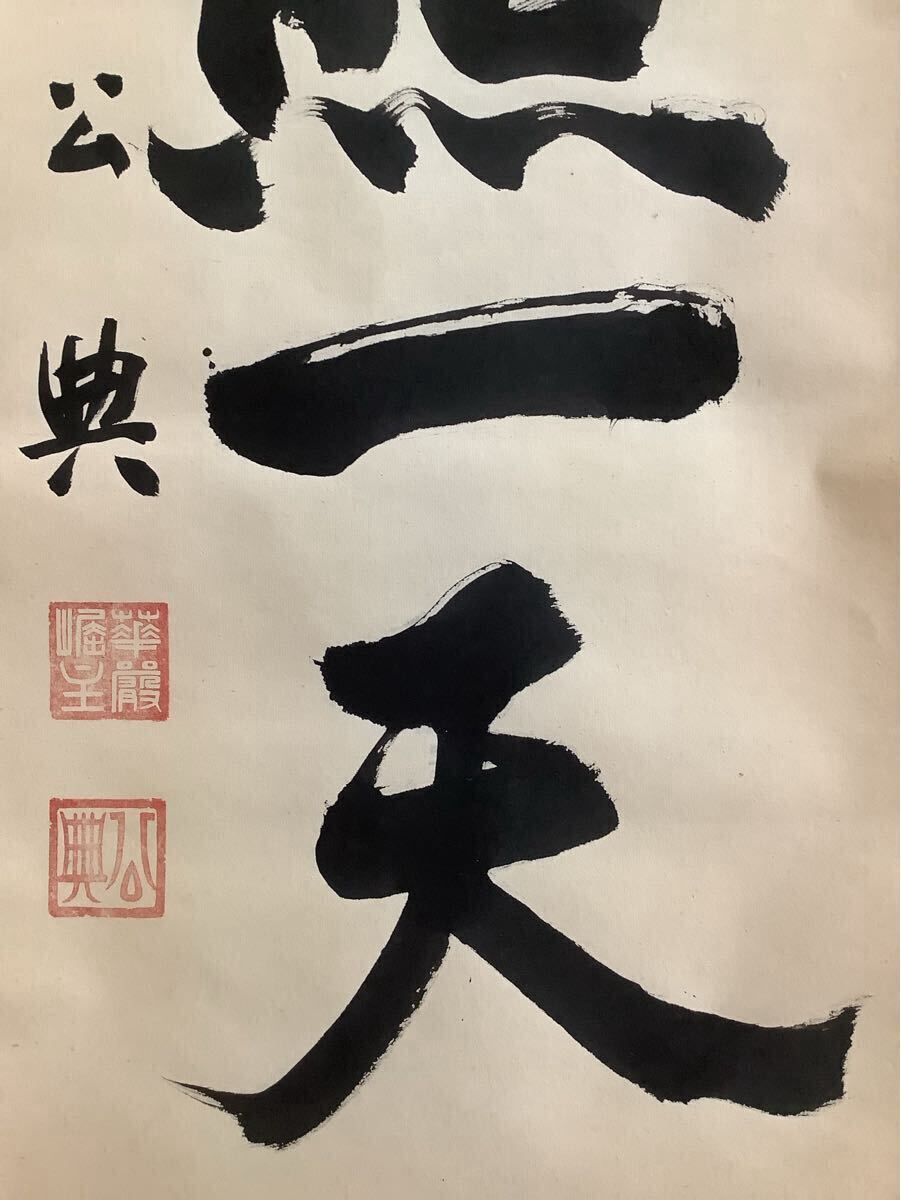 一天
公典
華嚴
主
公典